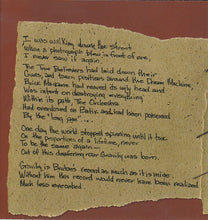 I was walking down the street
When a photograph blew in front of me,
I never saw it again
The Two Batsmen had laid down their
Cranes, and town positions around the Dream Machine,
Brick Maxims had reared its ugly head and
Was intent on destroying everything
Within its path, The Orchestra
Had overdosed on Batiz and had been poisoned
By the "long pge"...
One day the world stopped spinning until it took
On the proportions of a lifetime, never
To be the same again —
Out of this deafening roar Gravity was born.
Gravity is Brubons record as much as it is mine
Without him this record would never have been realized
Much less executed